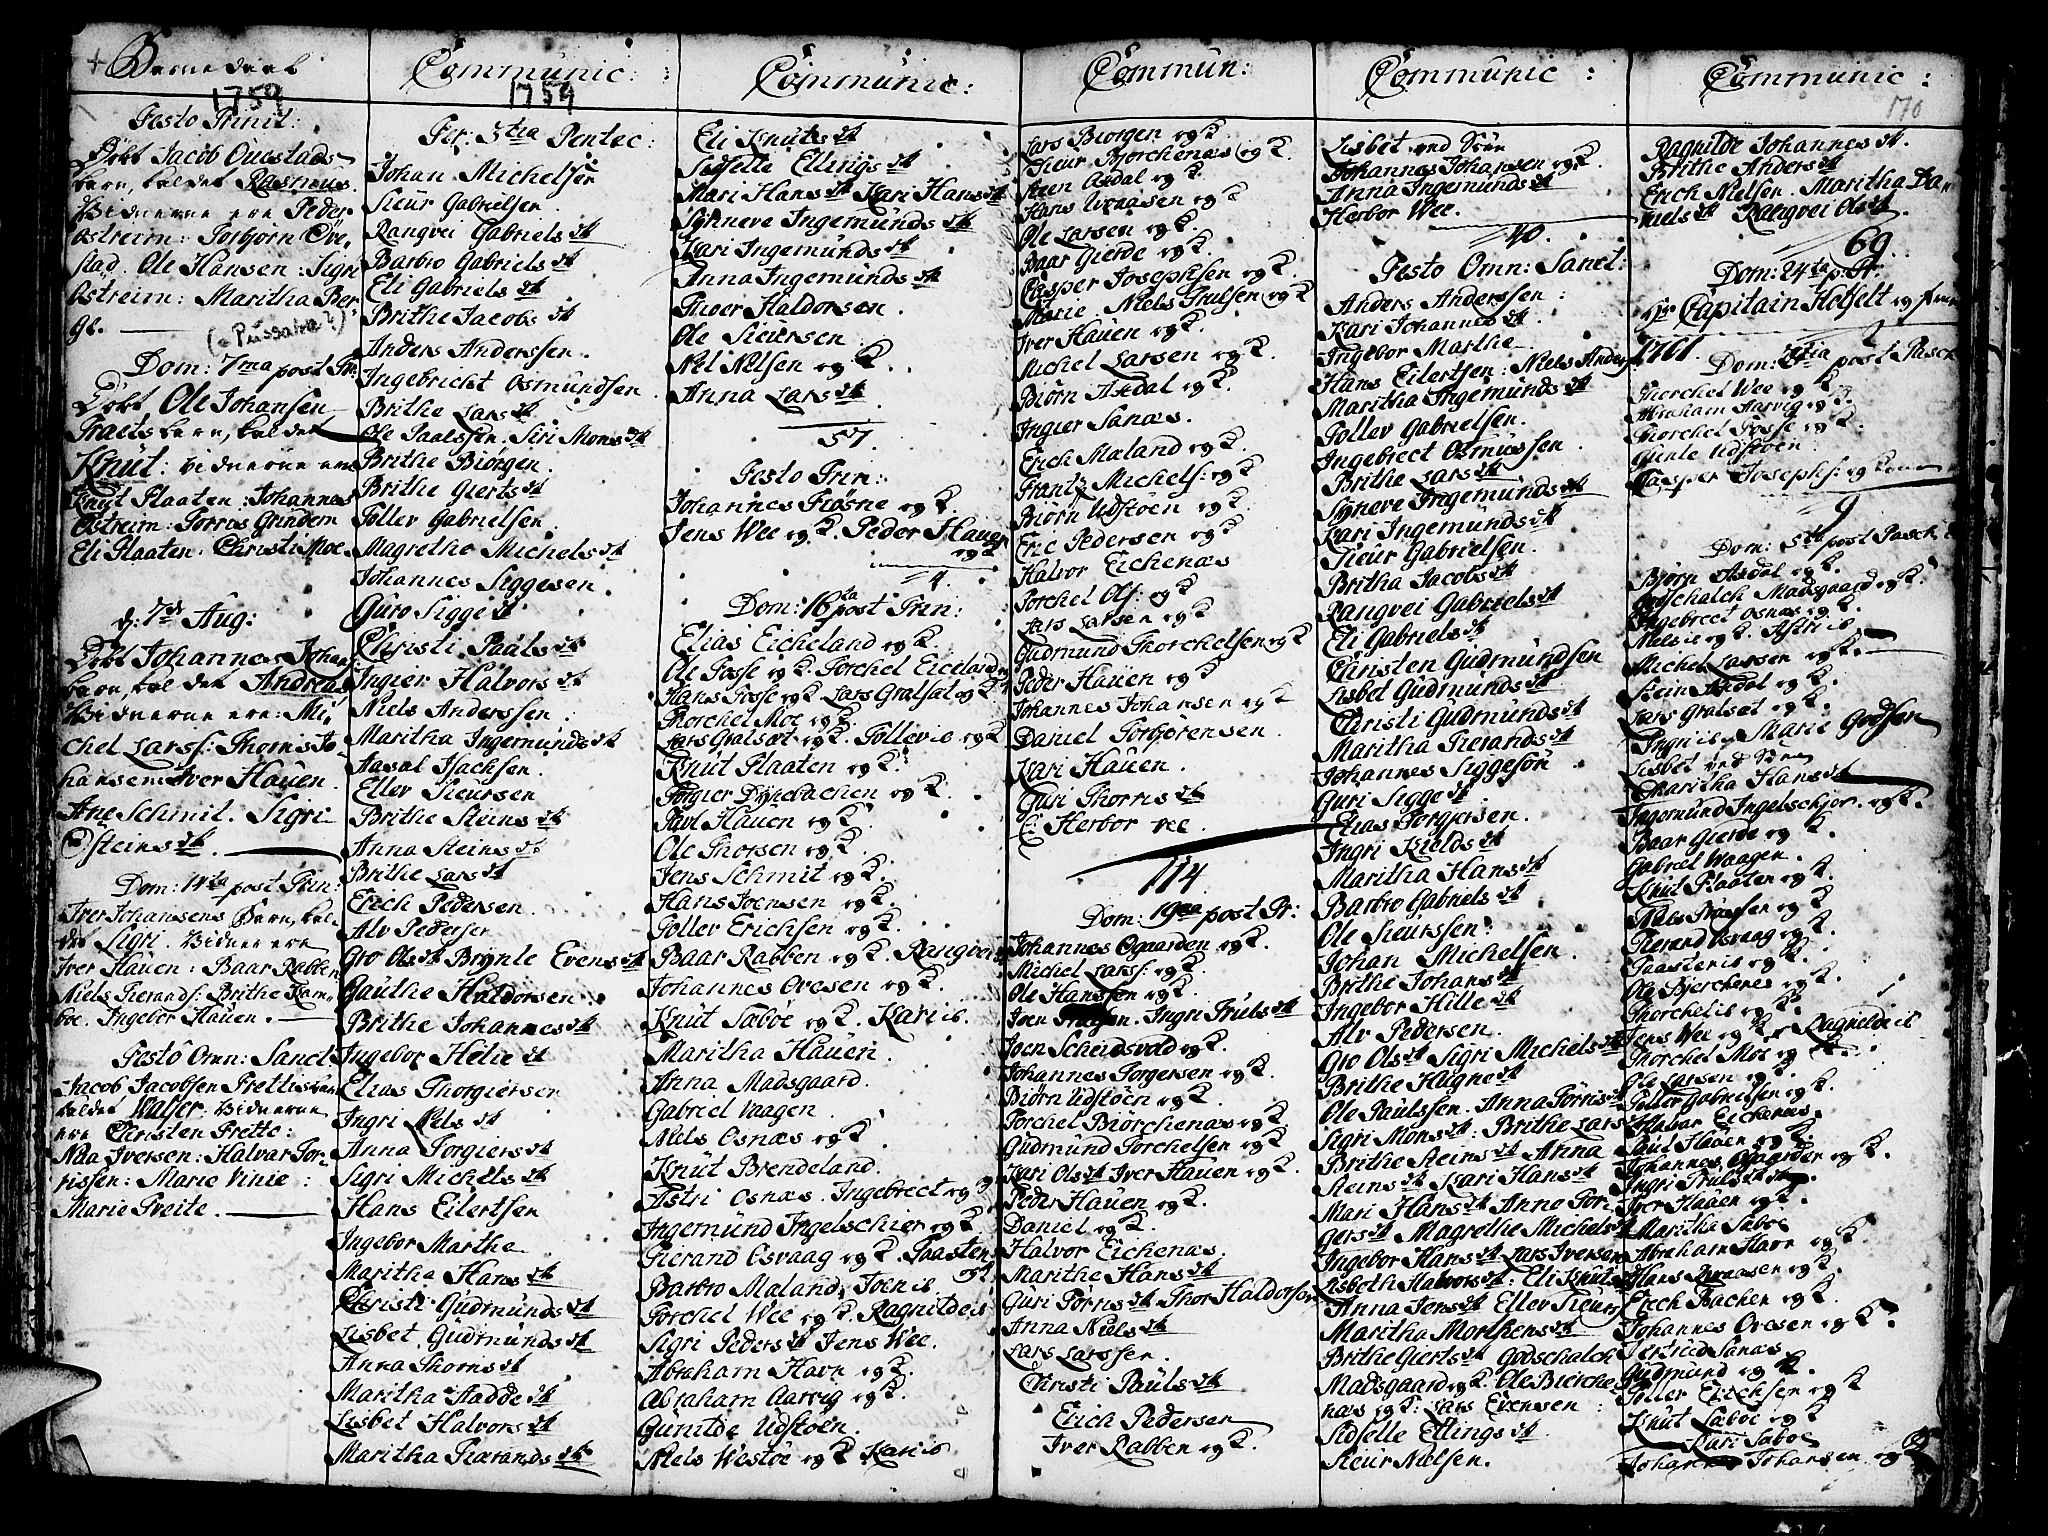 Communic:
1759
Festo Trinit:
Døbt Jacob Ouestads
barn, kaldet Rasmus.
Vidnerne ere Peder
Østreim: Torbjørn Ove-
stad. Ole Hansen: Sigri
Østreim: Maritha Ber-
ge.
Dom: 7ma post Tr:
Døbt Ole Johansen
Træets barn, kaldet
Knut: Vidnerne ere
Knut Plaaten: Johannes
Østreim: Torris Grindem
Eli Plaaten: Christi Moe.
d: 7de Aug:
Døbt Johannes Johans:
barn, kaldet Andreas
Vidnerne ere: Mi-
chel Larss: Thomis Jo-
hansen: Iver Hauen.
Ane Schmit. Sigri
Østeinsdt.
Dom: 14ta post Trin:
Iver Johansens Barn, kal-
det Sigri. Vidner ere
Iver Hauen: Baar Rabben
Niels Tierands: Brithe Ram-
boe. Ingebor Hauen.
Festo Omn: Sanct
Jacob Jacobsen Prettis barn
kaldet Walser. Vidnerne
ere Christen Prette:
Nila Iversen: Halvar Tor-
rissen: Marie Vinie:
Marie Preite.
1759
Fer: 3tia Pentec:
Johan Michelsen
Sieur Gabrielsen.
Rangvei Gabrielsdt
Barbro Gabrielsdt
Eli Gabrielsdt
Brithe Jacobsdt
Anders Anderssen.
Ingebricht Osmundsen
Brithe Larsdt
Ole Paalssen. Siri Monsdt
Brithe Biørgen.
Brithe Giertsdt
Tollev Gabrielsen.
Magrethe Michelsdt
Johannes Siggesen.
Guro Siggedt
Christi Paulsdt
Ingier Halvorsdt
Niels Anderssen.
Maritha Ingemundsdt
Aasul Isachsen.
Ellev Sieursen
Brithe Steinsdt
Anna Steinsdt
Brithe Larsdt
Erich Pedersen.
Alv Pedersen
Gro Olsdt Brynle Evensdt
Gauthe Haldorsen
Brithe Johannesdt
Ingebor Helie dt
Elias Thorgiersen
Ingri Nelsdt
Anna Torgiersdt
Sigri Michelsdt
Hans Eilertsen
Ingebor Marthe
Maritha Hansdt
Christi Gudmundsdt
Lisbet Gudmundsdt
Anna Thornsdt
Maritha Haddedt
Lisbet Halvorsdt
Maritha Tiærandsdt
Communic:
Eli Knutsdt
Sidselle Ellingsdt
Mari Hansdt Kari Hansdt
Synneve Ingemundsdt
Kari Ingemundsdt
Anna Ingemundsdt
Thoer Haldorsen.
Ole Sieursen.
Nel Nelsen og K.
Anna Larsdt
57
Festo Trin:
Johannes Frøsne og K.
Jens Wee og K. Peder Hauen
og K
4.
Dom: 16ta post Trin:
Elias Eicheland og K
Ole Fosse og K. Torchel Eicelander
Hans Fosse og K Lars Gratsæt og K
Thorchel Moe og K.
Lars Gralsæt og K. Tollevie og K
Knut Plaaten og K.
Torgier Dynevachen og K.
Paul Hauen og K.
Ole Thorsen og K.
Jens Schmit og K.
Hans Joensen og K.
Tollev Erichsen og K.
Baar Rabben og K. Rangveie
Johannes Ovesen og K.
Knut Sæbøe og K. Kari is.
Maritha Hauen.
Anna Madsgaard.
Gabriel Vaagen.
Niels Osnæs og K
Knut Brendeland.
Astri Osnæs. Ingebrect og K
Ingemund Ingelschier og K
Tierand Osvaag og K. Paasten
Barbro Maland. Joenis
Torchel Wee og K. Ragnildeis
Sigri Pedersdt Jens Wee.
Abraham Havn og K
Abraham Aarvig og K.
Gunilde Udstoen.
Niels Westøe og K Kari is
Commun:
Lars Biørgen og K.
Sieur Bjorchenæs og K.
Steen Asdal og K.
Hans Uraasen og K
Ole Larsen og K.
Baar Gierde og K.
Casper Josephsen og K.
Marie Niels Trulsen og K
Iver Hauen og K.
Michel Larsen og K.
Biørn Asdal og K.
Ingier Sanæs.
Erich Maland og K.
Frantz Michels: og K
Biørn Udstøen og K.
Eric Pedersen og K
Halvor Eichenæs
Torchel Ols: og K
Lars Larsen og K
Gudmund Thorchelsen og K
Peder Hauen og K
Johannes Johansen og K
Daniel Torbjørensen.
Kari Hauen.
Guri Thorrisdt
Herbor Vee.
114
Dom: 19na post Tr:
Johannes Ogaarden og K.
Michel Larss: og K.
Ole Hanssen og K.
Joen Trulsen. Ingri Trulsdt
Joen Scheidsvold og K.
Johannes Torgersen og K.
Biørn Udstøen og K.
Torchel Biørchenæs og K
Gudmund Torchelsen og K
Kari Olsdt Iver Hauen og K.
Peder Hauen og K
Daniel og K.
Halvor Eichenæs.
Marithe Hansdt
Guri Torrisdt Thor Haldorsen
Anna Nielsdt
Lars Larssen.
Christi Paulsdt
Erich Pedersen
Iver Rabben og K.
Communic:
Lisbet ved Søen
Johannes Johansen og K.
Anna Ingemundsdt
Herbor Wee.
40.
Festo Omn: Sanct:
Anders Anderssen:
Kari Johannesdt.
Ingebor Marthe
Hans Eilertsen: Niels Anders
Maritha Ingemundsdt
Tollev Gabrielsen.
Ingebrect Osmussen.
Brithe Larsdt
Synneve Ingemundsdt
Kari Ingemundsdt
Sieur Gabrielsen.
Britha Jacobsdt
Rangvei Gabrielsdt
Eli Gabrielsdt
Christen Gudmundsen
Lisbet Gudmundsdt
Christi Gudmundsdt
Maritha Tierandsdt
Johannes Siggesøn
Guri Siggedt
Elias Torgersen.
Ingri Kieldsdt
Maritha Hansdt
Barbro Gabrielsdt
Ole Sieurssen
Johan Michelsen.
Brithe Johansdt
Ingebor Hilledt
Alv Pedersen.
Gro Olsdt Sigri Michelsdt
Brithe Hugnedt
Ole Paulssen. Anna Torrisdt
Sigri Monsdt: Brithe Lars
Brithe Steinsdt Anna
Steinsdt Kari Hansdt
Mari Hansdt Anna Tor-
gersdt Magrethe Michelsdt
Ingebor Hansdt Lars Iversen
Lisbeth Halvorsdt: Eli Knutsdt
Anna Jensdt Ellev Sieurs
Maritha Morthensdt
Brithe Giertsdt Godschalch
Madsgaard og K. Ole Bierche-
næs og K: Lars Evensen:
Sidselle Ellingsdt
Sieur Nielsen.
Communic:
170
Ragnilde Johannesdt.
Brithe Andersdt
Erich Nielsen. Maritha Da-
nielsdt Rangvei Olsdt.
69.
Dom: 24ta p. Tr.
Hr Capitain Hetselt og frue
2
1761.
Dom: 4tia post Pasch
Thorchel Wee og K.
Abraham Aarvig og K.
Thorchel Fosse og K.
Giente Udstoen.
Casper Josephs: og kone
9
Dom: 5ta post Pasch
Biørn Asdal og K.
Godschalch Madsgaard og K.
Ingebrect Osnæs og K.
Nels ie og K. Astri is
Michel Larsen og K.
Stein Asdal og K.
Lars Gralsæt og K.
Ingri is Marie Godsen
Lisbet ved Søen
Maritha Hansdt
Ingemund Ingelschjor. og K.
Baar Gierde og K.
Gabriel Waagen.
Knut Plaaten og K.
Niels Trulsen og K
Tierand Osvaag og K.
Paasteris og K.
Ole Bjerchenes og K.
Thorchel is og K.
Jens Wee og K. Ragnilde is
Thorchel Moe og K.
Ole Larsen og K.
Tollev Gabrielsen og K.
Halvar Eichenæs.
Paul Hauen og K
Johannes Ogaarden og K.
Ingri Trulsdt
Iver Hauen og K.
Maritha Sæbøe
Abraham Havn og K.
Hans Uraasen og K.
Erech Bachen og K.
Johannes Ovesen og K.
Gertrud Sanæs
Gudmund og K.
Tollev Erechsen og K
Knut Sæbøe og K
Kari Sæbøe
Johannes Johansen og K